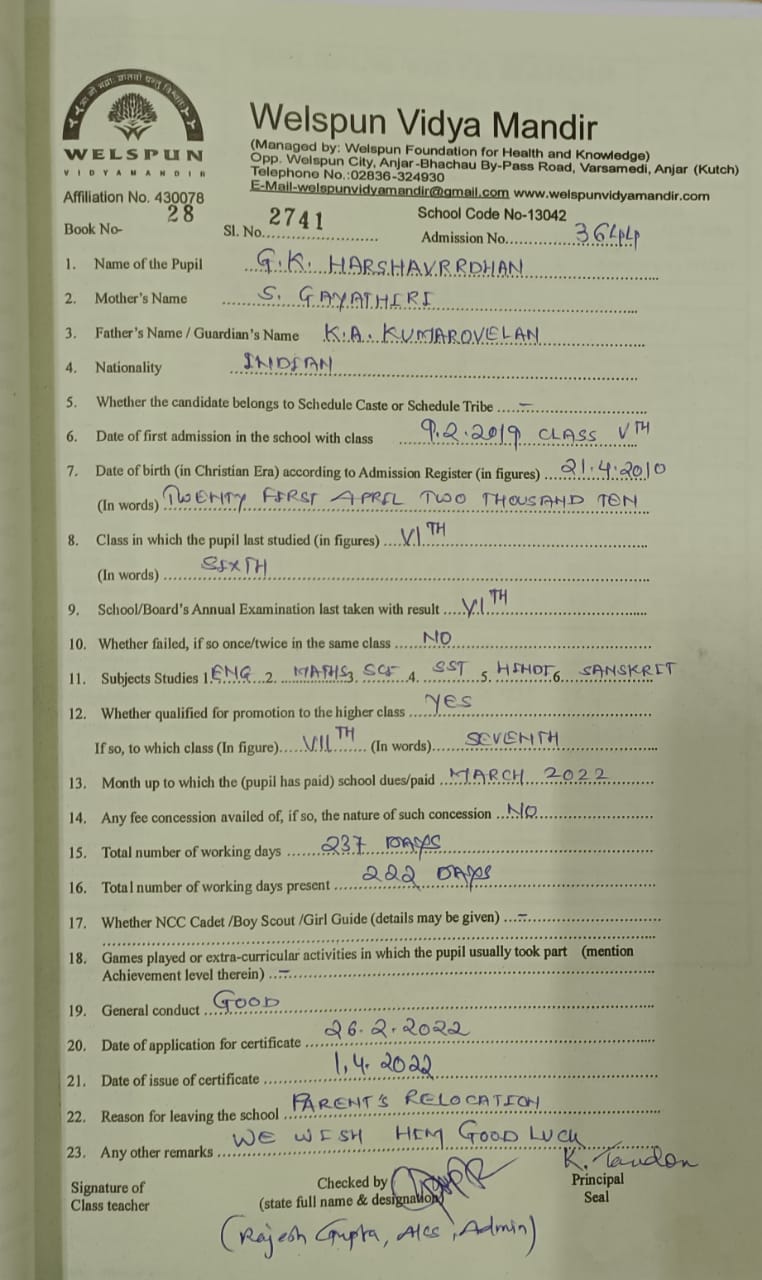 आ नो भद्राः क्रतवो यन्तु विश्वतः
WELSPUN
VIDYA MANDIR
Affiliation No. 430078
Welspun Vidya Mandir
(Managed by: Welspun Foundation for Health and Knowledge)
Opp. Welspun City, Anjar-Bhachau By-Pass Road, Varsamedi, Anjar (Kutch)
Telephone No.:02836-324930
E-Mail-welspunvidyamandir@gmail.com www.welspunvidyamandir.com
School Code No-13042
Book No- 28 Sl. No. 2741 Admission No. 3644
1. Name of the Pupil G.K. HARSHAVRRDHAN
2. Mother's Name S. GAYATHIRI
3. Father's Name / Guardian's Name K.A. KUMAROVELAN
4. Nationality INDIAN
5. Whether the candidate belongs to Schedule Caste or Schedule Tribe –
6. Date of first admission in the school with class 9.2.2019 CLASS VTH
7. Date of birth (in Christian Era) according to Admission Register (in figures) 21.4.2010
(In words) TWENTY FIRST APRIL TWO THOUSAND TEN
8. Class in which the pupil last studied (in figures) VITH
(In words) SIXTH
9. School/Board's Annual Examination last taken with result VITH
10. Whether failed, if so once/twice in the same class NO
11. Subjects Studies 1. ENG 2. MATHS 3. SCE 4. SST 5. HINDI 6. SANSKRIT
12. Whether qualified for promotion to the higher class YES
If so, to which class (In figure) VIITH (In words) SEVENTH
13. Month up to which the (pupil has paid) school dues/paid MARCH 2022
14. Any fee concession availed of, if so, the nature of such concession NO
15. Total number of working days 237 DAYS
16. Total number of working days present 222 DAYS
17. Whether NCC Cadet /Boy Scout /Girl Guide (details may be given) –
18. Games played or extra-curricular activities in which the pupil usually took part (mention
Achievement level therein) –
19. General conduct GOOD
20. Date of application for certificate 26.2.2022
21. Date of issue of certificate 1.4.2022
22. Reason for leaving the school PARENT'S RELOCATION
23. Any other remarks WE WISH HIM GOOD LUCK
K. Tandon
Signature of Checked by Principal
Class teacher (state full name & designation) Seal
(Rajesh Gupta, , Admin)